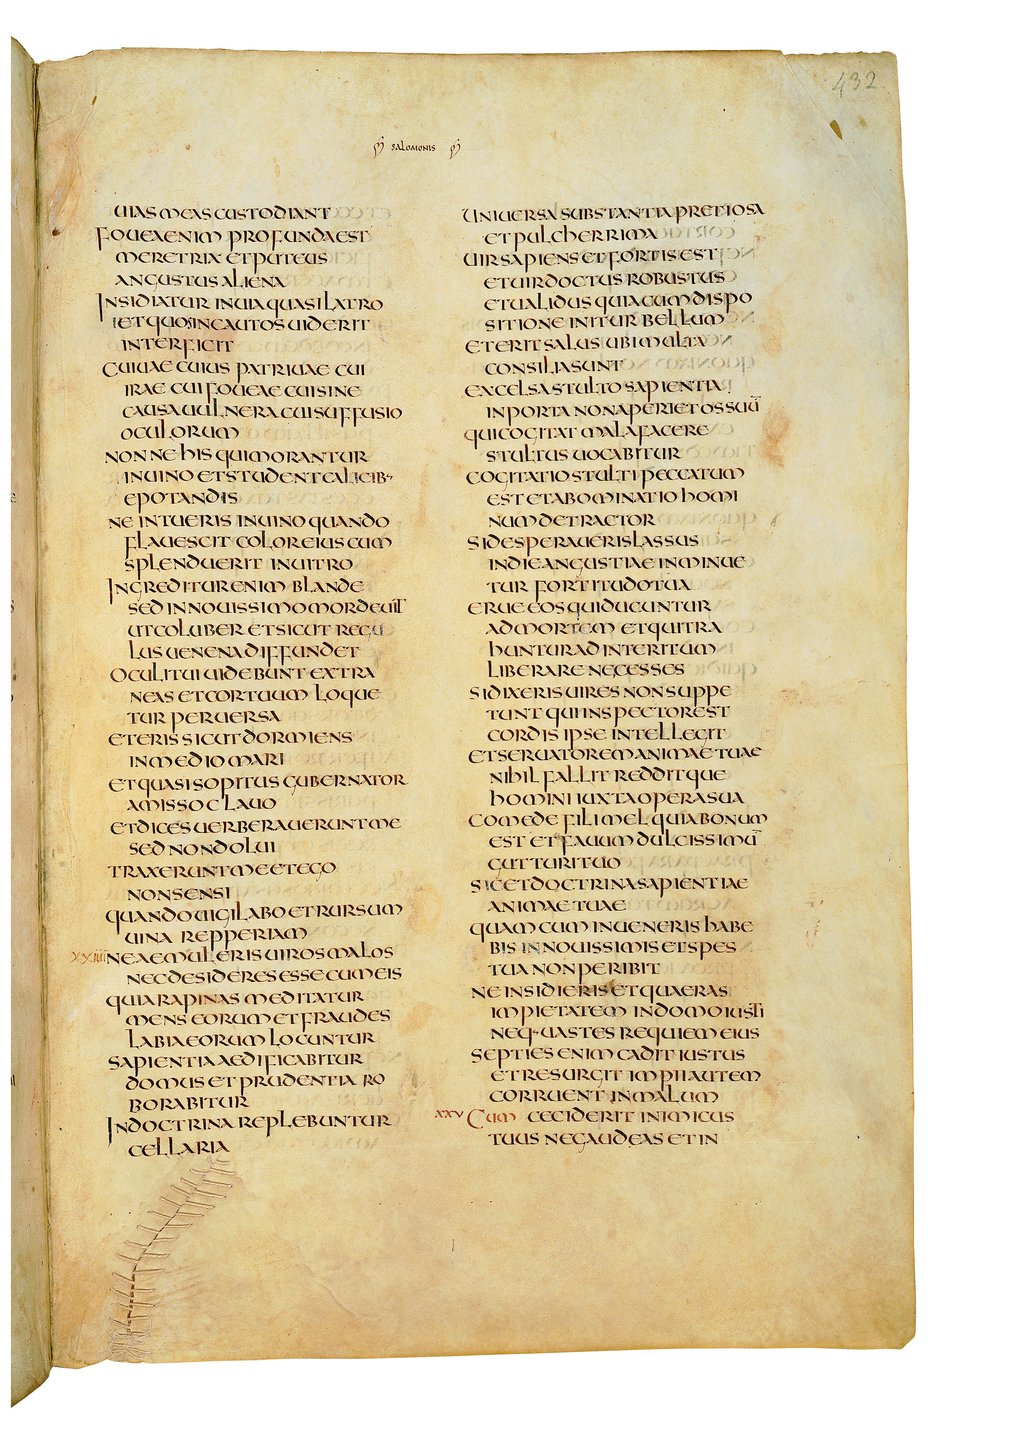 432
SALOMONIS
UIAS MEAS CUSTODIANT
FOUEA ENIM PROFUNDA EST
MERETRIX ET PUTEUS
ANGUSTUS ALIENA
INSIDIATUR IN UIA QUASI LATRO
ET QUOS INCAUTOS UIDERIT
INTERFICIT
CUI UAE CUIUS PATRI UAE CUI
IRAE CUI FOUEAE CUI SINE
CAUSA UULNERA CUI SUFFUSIO
OCULORUM
NONNE HIS QUI MORANTUR
IN UINO ET STUDENT CALICIB·
EPOTANDIS
NE INTUERIS IN UINO QUANDO
FLAUESCIT COLOR EIUS CUM
SPLENDUERIT IN UITRO
INGREDITUR ENIM BLANDE
SED IN NOUISSIMO MORDEUIT
UT COLUBER ET SICUT REGU
LUS UENENA DIFFUNDET
OCULI TUI UIDEBUNT EXTRA
NEAS ET COR TUUM LOQUE
TUR PERUERSA
ET ERIS SICUT DORMIENS
IN MEDIO MARI
ET QUASI SOPITUS GUBERNATOR
AMISSO CLAUO
ET DICES UERBERAUERUNT ME
SED NON DOLUI
TRAXERUNT ME ET EGO
NON SENSI
QUANDO UIGILABO ET RURSUM
UINA REPPERIAM
XXIIII NE AEMULERIS UIROS MALOS
NEC DESIDERES ESSE CUM EIS
QUIA RAPINAS MEDITATUR
MENS EORUM ET FRAUDES
LABIA EORUM LOCUNTUR
SAPIENTIA AEDIFICABITUR
DOMUS ET PRUDENTIA RO
BORABITUR
IN DOCTRINA REPLEBUNTUR
CELLARIA
UNIUERSA SUBSTANTIA PRETIOSA
ET PULCHERRIMA
UIR SAPIENS ET FORTIS EST
ET UIR DOCTUS ROBUSTUS
ET UALIDUS QUIA CUM DISPO
SITIONE INITUR BELLUM
ET ERIT SALUS UBI MULTA
CONSILIA SUNT
EXCELSA STULTO SAPIENTIA
IN PORTA NON APERIET OS SUŪ
QUI COGITAT MALA FACERE
STULTUS UOCABITUR
COGITATIO STULTI PECCATUM
EST ET ABOMINATIO HOMI
NUM DETRACTOR
SI DESPERAUERIS LASSUS
IN DIE ANGUSTIAE INMINUE
TUR FORTITUDO TUA
ERUE EOS QUI DUCUNTUR
AD MORTEM ET QUI TRA
HUNTUR AD INTERITUM
LIBERARE NE CESSES
SI DIXERIS UIRES NON SUPPE
TUNT QUI INSPECTOR EST
CORDIS IPSE INTELLEGIT
ET SERUATOREM ANIMAE TUAE
NIHIL FALLIT REDDITQUE
HOMINI IUXTA OPERA SUA
COMEDE FILI MEL QUIA BONUM
EST ET FAUUM DULCISSIMŪ
GUTTURI TUO
SIC ET DOCTRINA SAPIENTIAE
ANIMAE TUAE
QUAM CUM INUENERIS HABE
BIS IN NOUISSIMIS ET SPES
TUA NON PERIBIT
NE INSIDIERIS ET QUAERAS
IMPIETATEM IN DOMO IUSTI
NEQ· UASTES REQUIEM EIUS
SEPTIES ENIM CADIT IUSTUS
ET RESURGIT IMPII AUTEM
CORRUENT IN MALUM
XXV CUM CECIDERIT INIMICUS
TUUS NE GAUDEAS ET IN